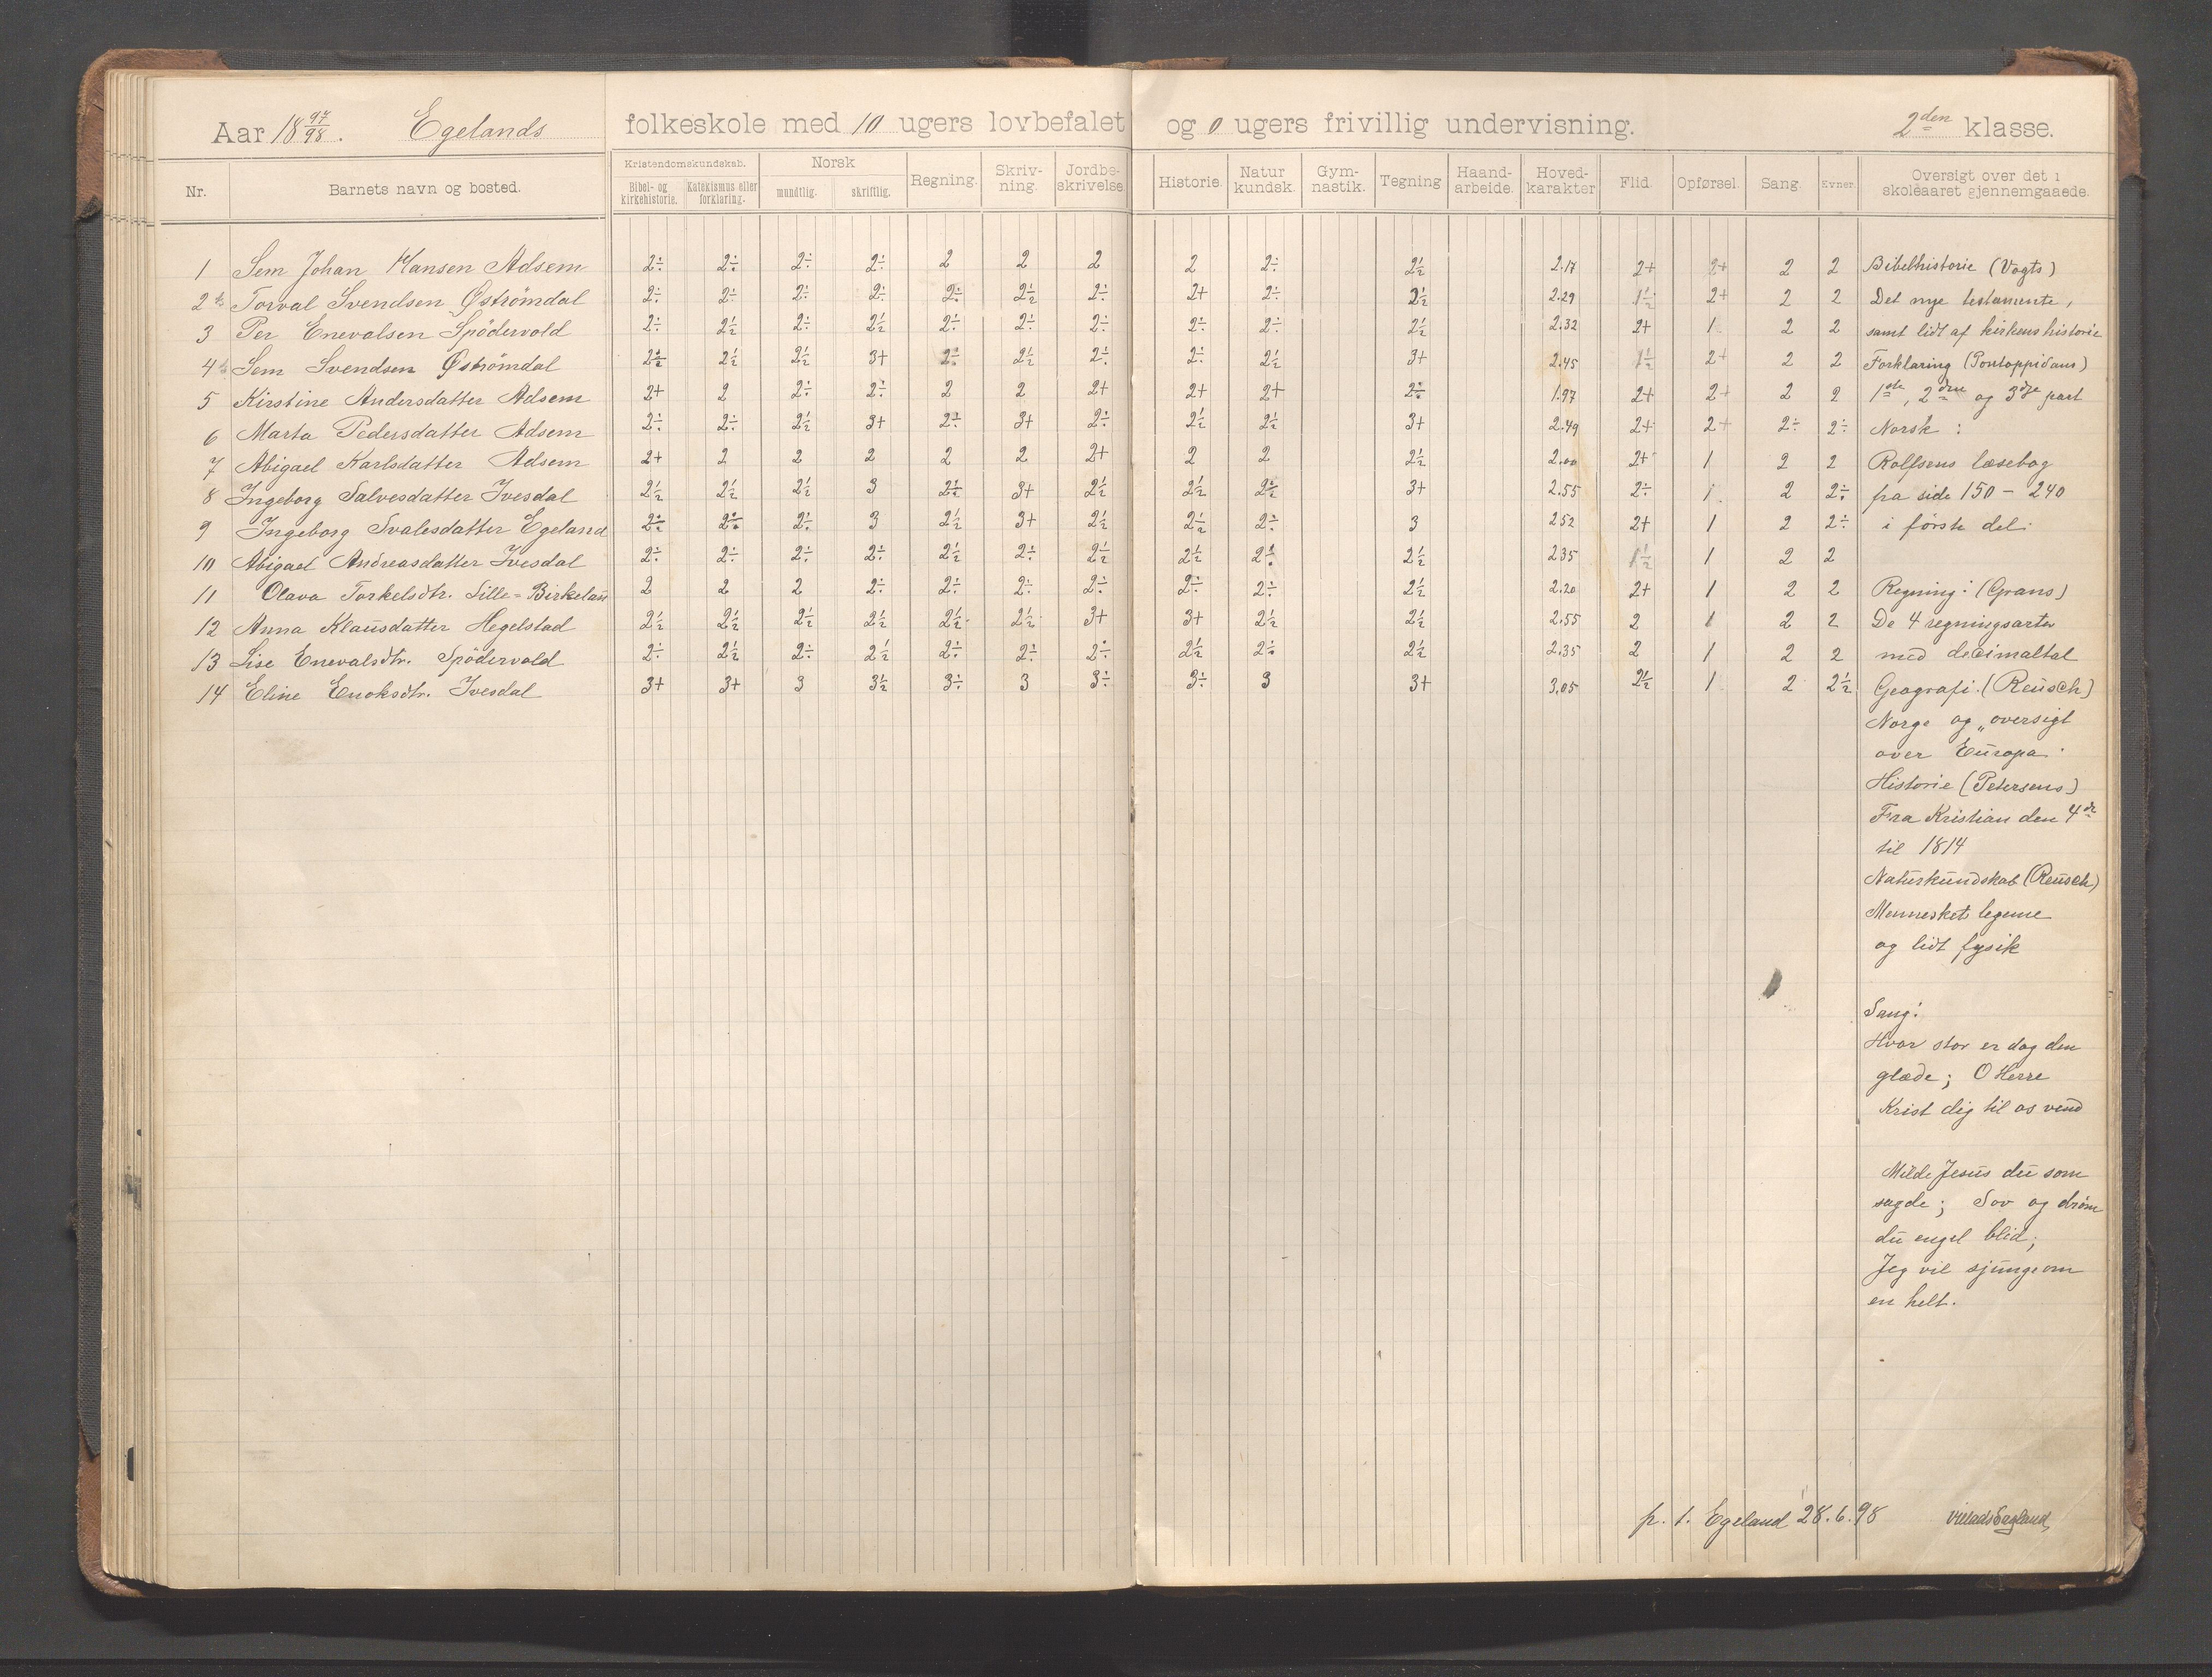 Aar 18 97/98. Egelands folkeskole med 10 ugers lovbefalet og 0 ugers frivillig undervisning. 2den klasse.
Nr. Barnets navn og bosted. Kristendomskundskab. Bibel- og kirkehistorie. Katekismus eller forklaring. Norsk mundtlig. skriftlig. Regning. Skriv-ning. Jordbe-skrivelse. Historie. Natur kundsk. Gym-nastik. Tegning Haand-arbeide. Hoved-karakter Flid. Opførsel. Sang. Evner. Oversigt over det i skoleaaret gjennemgaaede.
1 Sem Johan Hansen Adsem 2÷ 2÷ 2÷ 2÷ 2 2 2 2 2÷ 2½ 2.17 2+ 2+ 2 2 Bibelhistorie (Vogts)
2 Torval Svendsen Øströmdal 2÷ 2÷ 2÷ 2÷ 2÷ 2½ 2÷ 2+ 2÷ 2½ 2.29 1½ 2+ 2 2 Det nye testamente,
3 Per Enevalsen Spödervold 2÷ 2½ 2÷ 2½ 2÷ 2÷ 2÷ 2÷ 2÷ 2½ 2.32 2+ 1 2 2 samt lidt af kirkens historie
4 Sem Svendsen Øströmdal 2÷ 2½ 2½ 3+ 2÷ 2½ 2÷ 2÷ 2½ 3+ 2.45 1½ 2+ 2 2 Forklaring (Pontoppidans)
5 Kirstine Andersdatter Adsem 2+ 2 2÷ 2÷ 2 2 2+ 2+ 2+ 2÷ 1.97 2+ 2+ 2 2 1ste, 2den og 3dje part
6 Marta Pedersdatter Adsem 2÷ 2÷ 2½ 3+ 2÷ 3+ 2÷ 2½ 2½ 3+ 2.49 2+ 2+ 2÷ 2÷ Norsk :
7 Abigael Karlsdatter Adsem 2+ 2 2 2 2 2 2+ 2 2 2½ 2.00 2+ 1 2 2 Rolfsens læsebog
8 Ingeborg Salvesdatter Ivesdal 2½ 2½ 2½ 3 2÷ 3+ 2½ 2½ 2÷ 3+ 2.55 2÷ 1. 2 2÷ fra side 150 - 240
9 Ingeborg Svalesdatter Egeland 2÷ 2÷ 2÷ 3 2½ 3+ 2½ 2½ 2÷ 3 2.52 2+ 1 2 2÷ i første del.
10 Abigael Andreasdatter Ivesdal 2÷ 2÷ 2÷ 2÷ 2½ 2÷ 2½ 2½ 2÷ 2½ 2.35 1½ 1 2 2
11 Olava Torkelsdtr. Lille-Birkeland 2 2 2 2÷ 2÷ 2÷ 2÷ 2÷ 2÷ 2½ 2.20 2+ 1 2 2 Regning: (Grans)
12 Anna Klausdatter Hegelstad 2½ 2½ 2½ 2½ 2½ 2½ 3+ 3+ 2½ 2½ 2.55 2 1 2 2 De 4 regningsarter
13 Lise Enevalsdtr. Spödervold 2÷ 2½ 2÷ 2½ 2÷ 2÷ 2÷ 2½ 2÷ 2½ 2.35 2 1 2 2 med decimaltal
14 Eline Enoksdtr. Ivesdal 3+ 3+ 3 3½ 3÷ 3 3÷ 3÷ 3 3+ 3.05 2½ 1 2 2½ Geografi. (Reusch)
Norge og oversigt
over Europa.
Historie (Petersens)
Fra Kristian den 4de
til 1814
Naturkundskab (Reusch)
Mennesket legeme
og lidt fysik
Sang:
Hvor stor er dog den
glæde; O Herre
Krist dig til os vend
Milde Jesus du som
sagde; Sov og drøm
du engel blid;
Jeg vil sjunge om
en helt.
p. t. Egeland 28.6.98 Villads Eegland